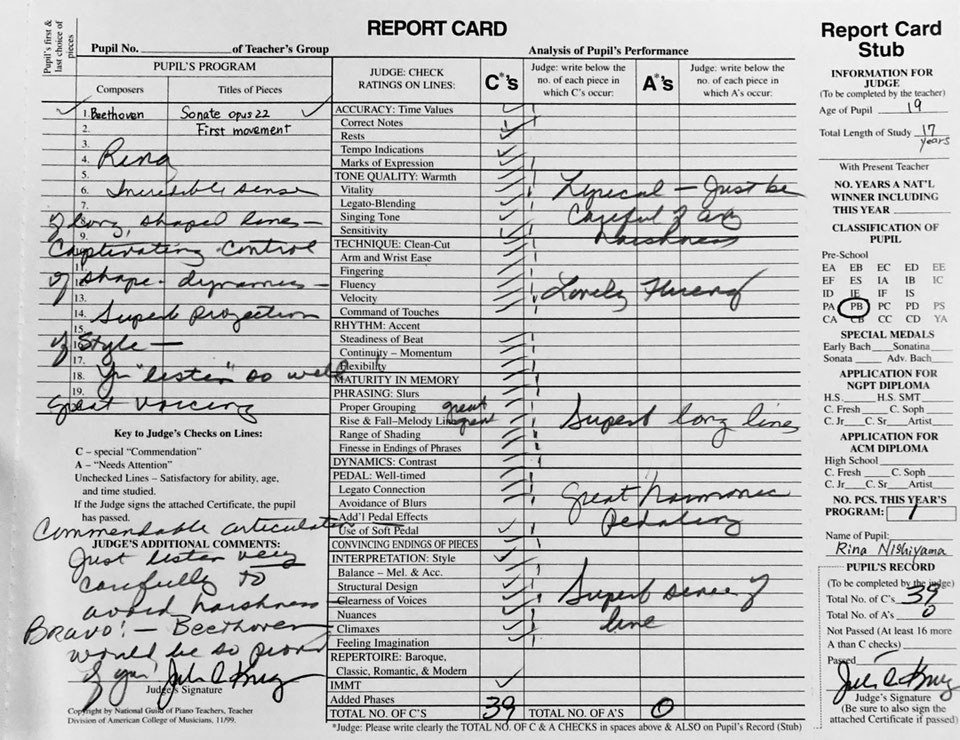 REPORT CARD
Pupil's first & last choice of pieces
Pupil No. of Teacher's Group
Analysis of Pupil's Performance
PUPIL'S PROGRAM
Composers
Titles of Pieces
JUDGE: CHECK RATINGS ON LINES:
C*'s
Judge: write below the no. of each piece in which C's occur:
A*'s
Judge: write below the no. of each piece in which A's occur:
1. Beethoven Sonate opus 22
2. First movement
3.
4. Rina
5.
6. Incredible sense
of long, shaped lines –
9.
Captivating control
of shape – dynamics –
13.
14. Superb projection
15.
of style –
17.
18. You "listen" so well
19.
Great voicing
ACCURACY: Time Values
Correct Notes
Rests
Tempo Indications
Marks of Expression
TONE QUALITY: Warmth
Vitality
Legato-Blending
Singing Tone
Sensitivity
Lyrical – Just be
careful of any
harshness
TECHNIQUE: Clean-Cut
Arm and Wrist Ease
Fingering
Fluency
Velocity
Command of Touches
Lovely
RHYTHM: Accent
Steadiness of Beat
Continuity – Momentum
Flexibility
MATURITY IN MEMORY
PHRASING: Slurs
Proper Grouping great
Rise & Fall–Melody Line great
Range of Shading
Finesse in Endings of Phrases
Superb long lines
DYNAMICS: Contrast
PEDAL: Well-timed
Legato Connection
Avoidance of Blurs
Add'l Pedal Effects
Use of Soft Pedal
Great harmonic
pedaling
CONVINCING ENDINGS OF PIECES
INTERPRETATION: Style
Balance – Mel. & Acc.
Structural Design
Clearness of Voices
Nuances
Climaxes
Feeling Imagination
Superb sense of
line
REPERTOIRE: Baroque,
Classic, Romantic, & Modern
IMMT
Added Phases
TOTAL NO. OF C'S 39 TOTAL NO. OF A'S 0
*Judge: Please write clearly the TOTAL NO. OF C & A CHECKS in spaces above & ALSO on Pupil's Record (Stub)
Key to Judge's Checks on Lines:
C – special "Commendation"
A – "Needs Attention"
Unchecked Lines – Satisfactory for ability, age,
and time studied.
If the Judge signs the attached Certificate, the pupil
has passed.
Commendable articulation
JUDGE'S ADDITIONAL COMMENTS:
Just listen very
carefully to
avoid harshness –
BRAVO! – Beethoven
would be so proud
of you!
Judge's Signature
Copyright by National Guild of Piano Teachers, Teacher
Division of American College of Musicians, 11/99.
Report Card
Stub
INFORMATION FOR
JUDGE
(To be completed by the teacher)
Age of Pupil 19
Total Length of Study 17
years
With Present Teacher
NO. YEARS A NAT'L
WINNER INCLUDING
THIS YEAR
CLASSIFICATION OF
PUPIL
Pre-School
EA EB EC ED EE
EF ES IA IB IC
ID IE IF IS
PA PB PC PD PS
CA CB CC CD YA
SPECIAL MEDALS
Early Bach Sonatina
Sonata Adv. Bach
APPLICATION FOR
NGPT DIPLOMA
H.S. H.S. SMT
C. Fresh C. Soph
C. Jr C. Sr Artist
APPLICATION FOR
ACM DIPLOMA
High School
C. Fresh C. Soph
C. Jr C. Sr Artist
NO. PCS. THIS YEAR'S
PROGRAM: 1
Name of Pupil:
Rina Nishiyama
PUPIL'S RECORD
(To be completed by the judge)
Total No. of C's 39
Total No. of A's 0
Not Passed (At least 16 more
A than C checks)
Passed
Judge's Signature
(Be sure to also sign the
attached Certificate if passed)